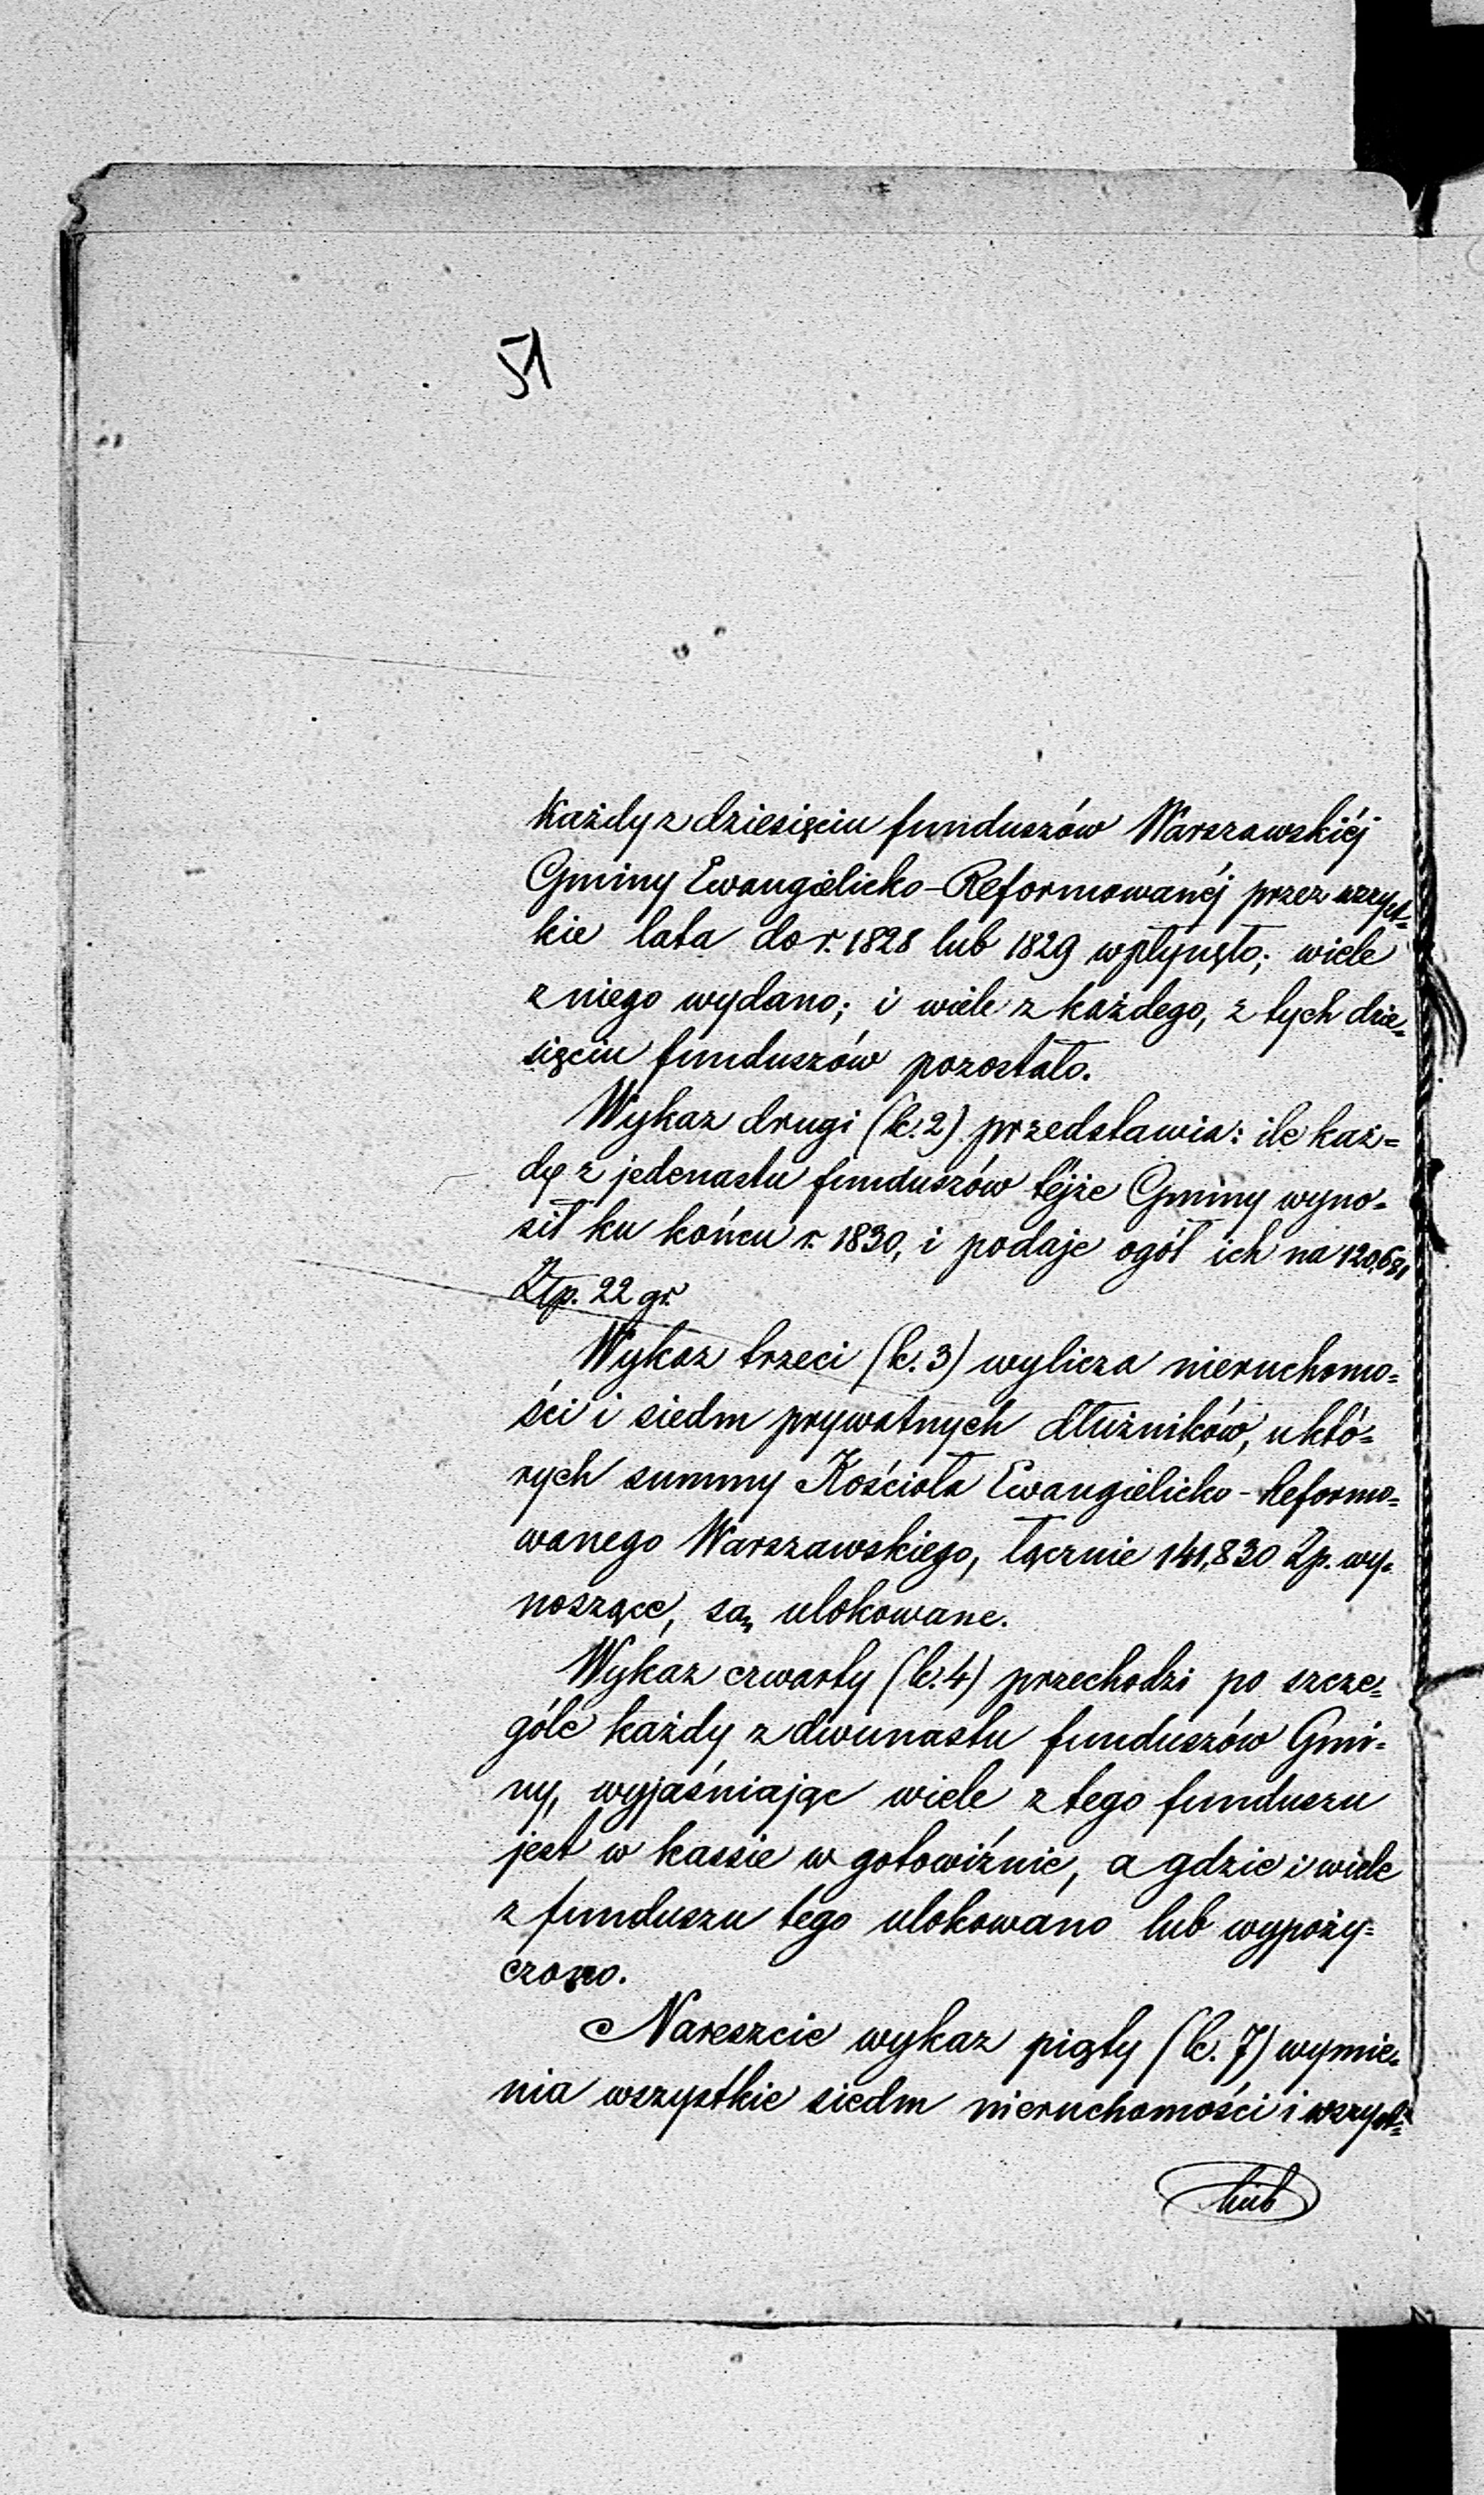 51
każdy z dziesięciu funduszów Warszawskiéj
Gminy Ewangielicko-Reformowanéj przez wszyst=
kie lata do r. 1828 lub 1829 wpłynęło; wiele
z niego wydano; i wiele z każdego, z tych dzie=
sięciu funduszów pozostało.
Wykaz drugi (k. 2) przedstawia: ile każ=
dy z jedenastu funduszów téjże Gminy wyno=
sił ku końcu r. 1830, i podaje ogół ich na
Złp. 22 gr.
Wykaz trzeci (k. 3) wylicza nieruchomo=
ści i siedm prywatnych dłużników, u któ=
rych summy Kościoła Ewangielicko-Reformo=
wanego Warszawskiego, łącznie 141,830 Zp. wy=
noszące, są ulokowane.
Wykaz czwarty (k. 4) przechodzi po szcze=
góle każdy z dwunastu funduszów Gmi=
ny, wyjaśniając wiele z tego funduszu
jest w kassie w gotowiźnie, a gdzie i wiele
z funduszu tego ulokowano lub wypoży=
czono.
Nareszcie wykaz piąty (k. 7) wymie=
nia wszystkie siedm nieruchomości i wszyst=